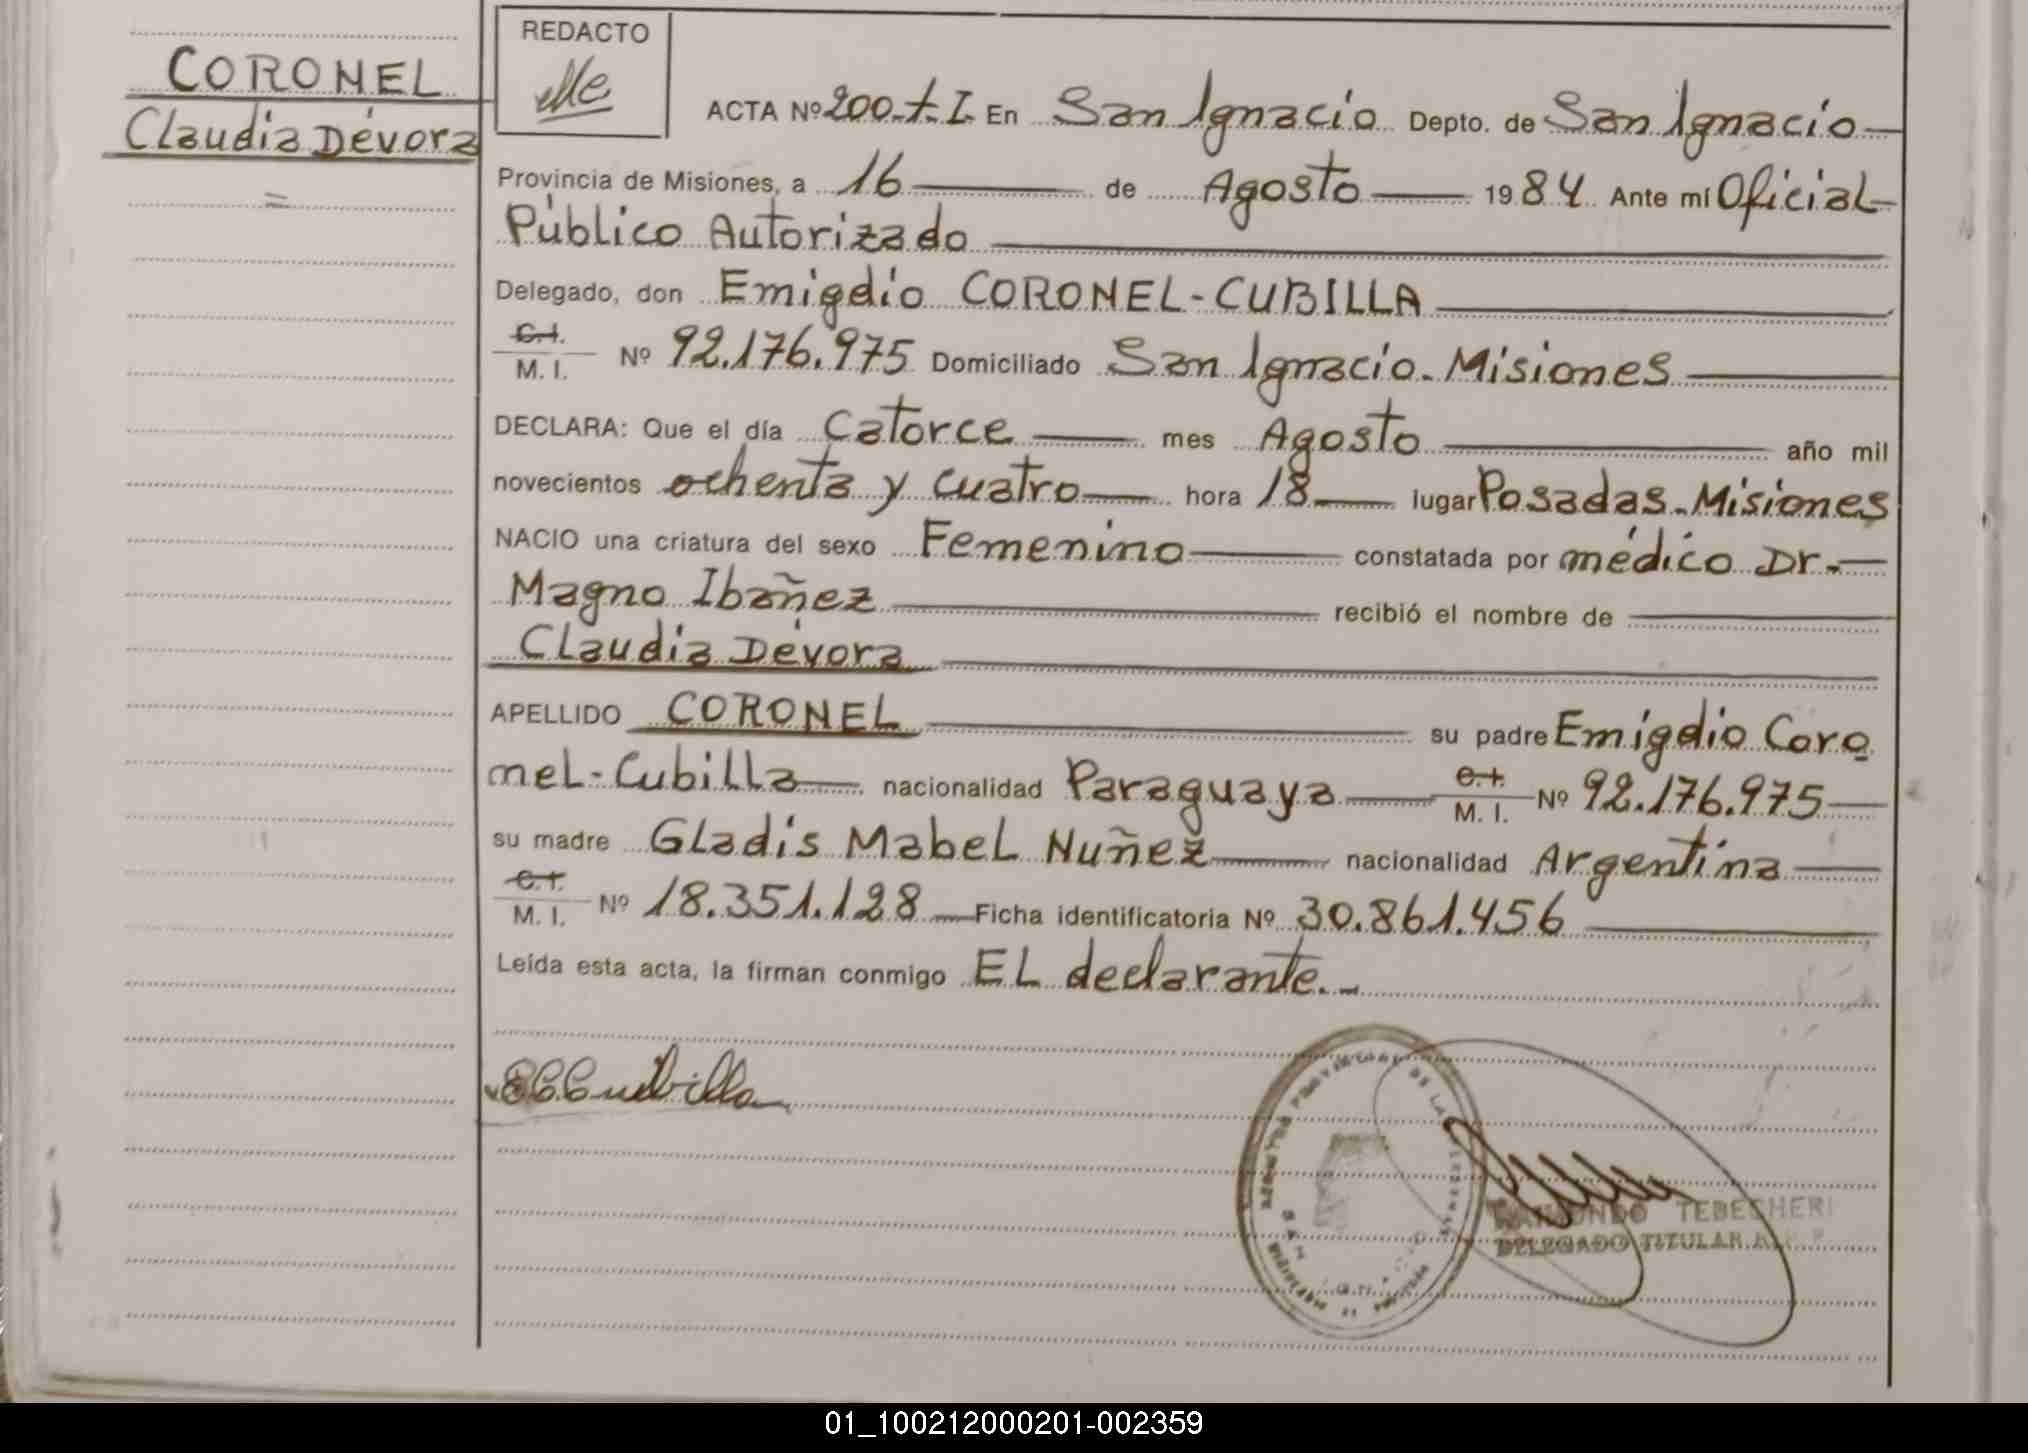 CORONEL
Claudia Dévora
=
REDACTO
ACTA Nº 200.-t.I. En San Ignacio Depto. de San Ignacio
Provincia de Misiones, a 16 de Agosto 1984. Ante mí Oficial
Público Autorizado
Delegado, don Emigdio CORONEL-CUBILLA
C.I.
M. I. Nº 92.176.975 Domiciliado San Ignacio. Misiones
DECLARA: Que el día Catorce mes Agosto año mil
novecientos ochenta y cuatro hora 18 lugar Posadas. Misiones
NACIO una criatura del sexo Femenino constatada por médico Dr.
Magno Ibañez recibió el nombre de
Claudia Dévora
APELLIDO CORONEL su padre Emigdio Coro
nel-Cubilla nacionalidad Paraguaya C.I. M. I. Nº 92.176.975
su madre Gladis Mabel Nuñez nacionalidad Argentina
C.I.
M. I. Nº 18.351.128 Ficha identificatoria Nº 30.861.456
Leída esta acta, la firman conmigo EL declarante.-
Cubilla
REGISTRO PROVINCIAL DE LAS PERSONAS
SAN IGNACIO
RAIMUNDO TEBECHERI
DELEGADO TITULAR R.P.P.
01_100212000201-002359